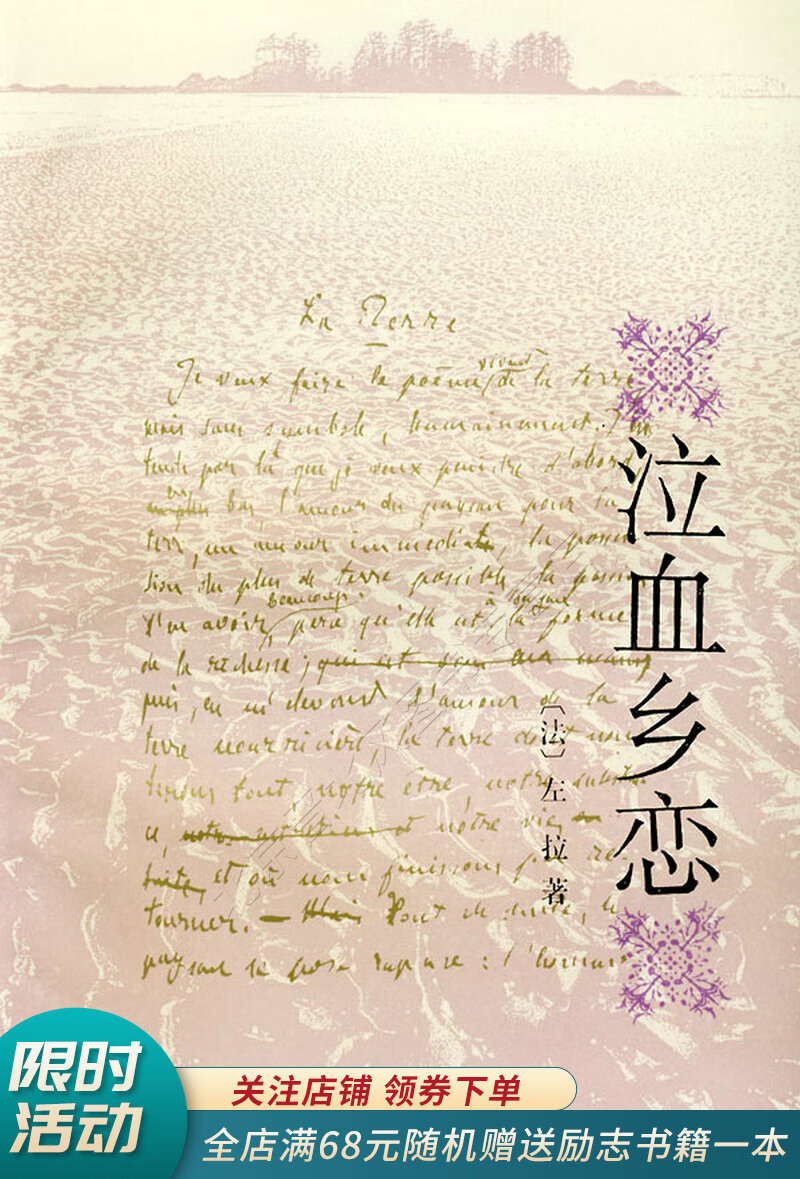 La Terre
Je veux faire le poème vivant de la terre,
mais sans symbole, humainement. J'en
tends par là que je veux peindre d'abord,
en bas, l'amour du paysan pour la
terre, un amour immédiat, la posses
sion du plus de terre possible, la passion
d'en avoir beaucoup, parce qu'elle est à ses yeux la forme
de la richesse;
puis, en m'élevant, l'amour de la
terre nourricière, la terre dont nous
tirons tout, notre être, notre substan
ce, notre vie,
et où nous finissons par re
tourner. –
paysan se pose
泣血乡恋
〔法〕左拉 著
限时
活动
关注店铺 领券下单
全店满68元随机赠送励志书籍一本